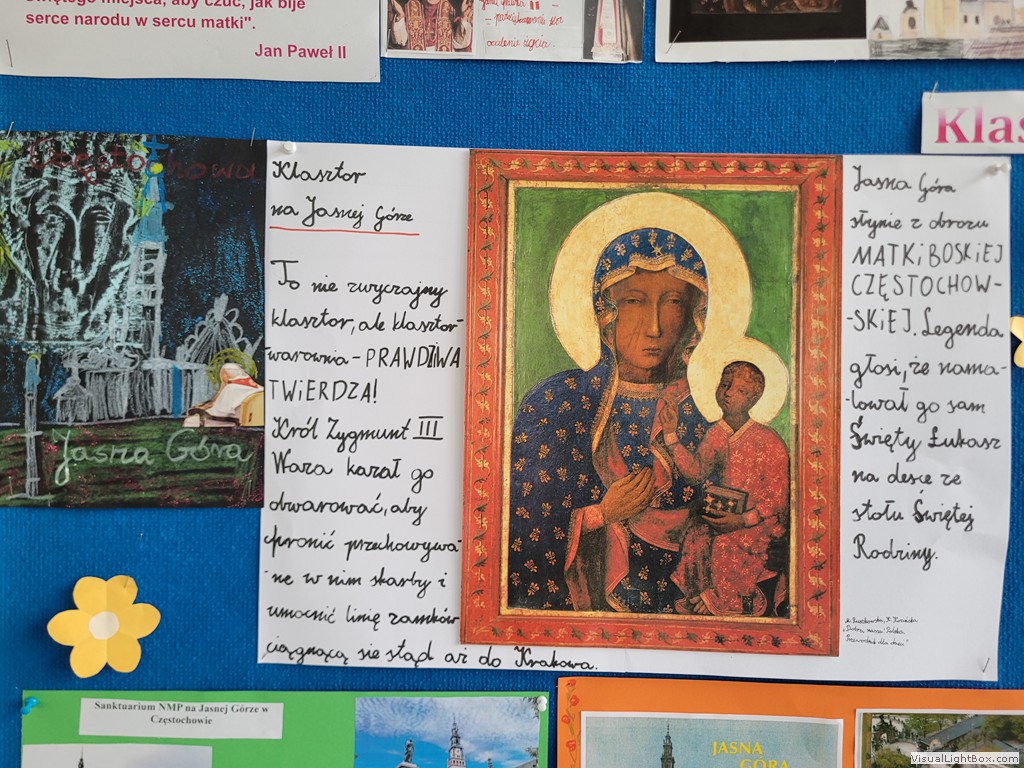 Świętego miejsca, aby czuć, jak bije
serce narodu w sercu matki".
Jan Paweł II
II
ocalenie życia.
Klas
Częstochowa
Jasna Góra
Klasztor
na Jasnej Górze
To nie zwyczajny
klasztor, ale klasztor-
warownia - PRAWDZIWA
TWIERDZA!
Król Zygmunt III
Waza kazał go
obwarować, aby
chronić przechowywa-
ne w nim skarby i
umocnić linię zamków
ciągnącą się stąd aż do Krakowa.
Jasna Góra
słynie z obrazu
MATKI BOSKIEJ
CZĘSTOCHOW-
-SKIEJ. Legenda
głosi, że nama-
-lował go sam
Święty Łukasz
na desce ze
stołu Świętej
Rodziny.
Przewodnik dla dzieci"
Sanktuarium NMP na Jasnej Górze w
Częstochowie
JASNA
GÓRA
VisualLightBox.com